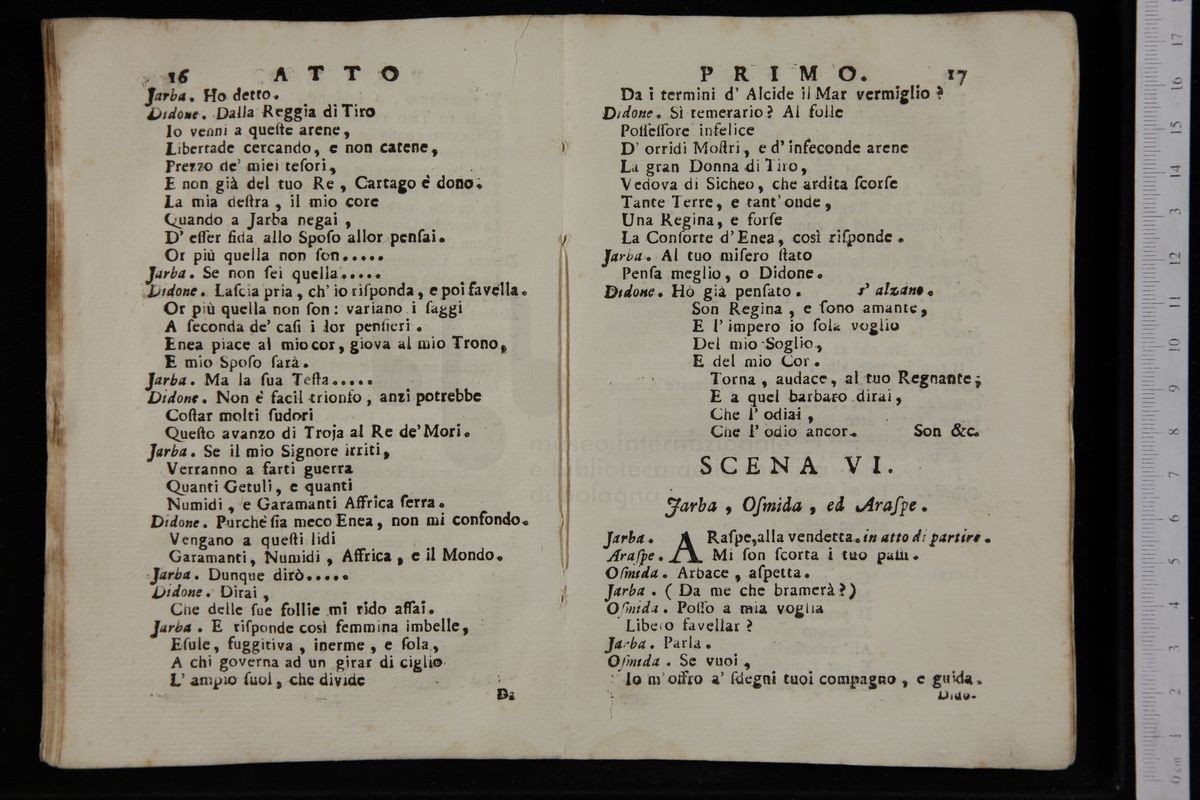 16 ATTO
Jarba. Ho detto.
Didone. Dalla Reggia di Tiro
Io venni a queſte arene,
Libertade cercando, e non catene,
Prezzo de' miei teſori,
E non già del tuo Re, Cartago è dono.
La mia deſtra, il mio core
Quando a Jarba negai,
D' eſſer fida allo Spoſo allor penſai.
Or più quella non ſon.....
Jarba. Se non ſei quella.....
Didone. Laſcia pria, ch' io riſponda, e poi favella.
Or più quella non ſon: variano i ſaggi
A ſeconda de' caſi i lor penſieri.
Enea piace al mio cor, giova al mio Trono,
E mio Spoſo ſarà.
Jarba. Ma la ſua Teſta.....
Didone. Non è facil trionfo, anzi potrebbe
Coſtar molti ſudori
Queſto avanzo di Troja al Re de' Mori.
Jarba. Se il mio Signore irriti,
Verranno a farti guerra
Quanti Getuli, e quanti
Numidi, e Garamanti Affrica ſerra.
Didone. Purchè ſia meco Enea, non mi confondo.
Vengano a queſti lidi
Garamanti, Numidi, Affrica, e il Mondo.
Jarba. Dunque dirò.....
Didone. Dirai,
Che delle ſue follie mi rido aſſai.
Jarba. E riſponde così femmina imbelle,
Eſule, fuggitiva, inerme, e ſola,
A chi governa ad un girar di ciglio
L' ampio ſuol, che divide
Da
PRIMO. 17
Da i termini d' Alcide il Mar vermiglio?
Didone. Sì temerario? Al folle
Poſſeſſore infelice
D' orridi Moſtri, e d' infeconde arene
La gran Donna di Tiro,
Vedova di Sicheo, che ardita ſcorſe
Tante Terre, e tant' onde,
Una Regina, e forſe
La Conſorte d' Enea, così riſponde.
Jarba. Al tuo miſero ſtato
Penſa meglio, o Didone.
Didone. Hò già penſato. s' alzano.
Son Regina, e ſono amante,
E l' impero io ſola voglio
Del mio Soglio,
E del mio Cor.
Torna, audace, al tuo Regnante;
E a quel barbaro dirai,
Che l' odiai,
Che l' odio ancor. Son &c.
SCENA VI.
Jarba, Oſmida, ed Araſpe.
Jarba. ARaſpe, alla vendetta. in atto di partire.
Araſpe. Mi ſon ſcorta i tuo paſſi.
Oſmida. Arbace, aſpetta.
Jarba. (Da me che bramerà?)
Oſmida. Poſſo a mia voglia
Libero favellar?
Jarba. Parla.
Oſmida. Se vuoi,
Io m' offro a' ſdegni tuoi compagno, e guida.
Dido-
museo internazionale
e biblioteca della
di bologna